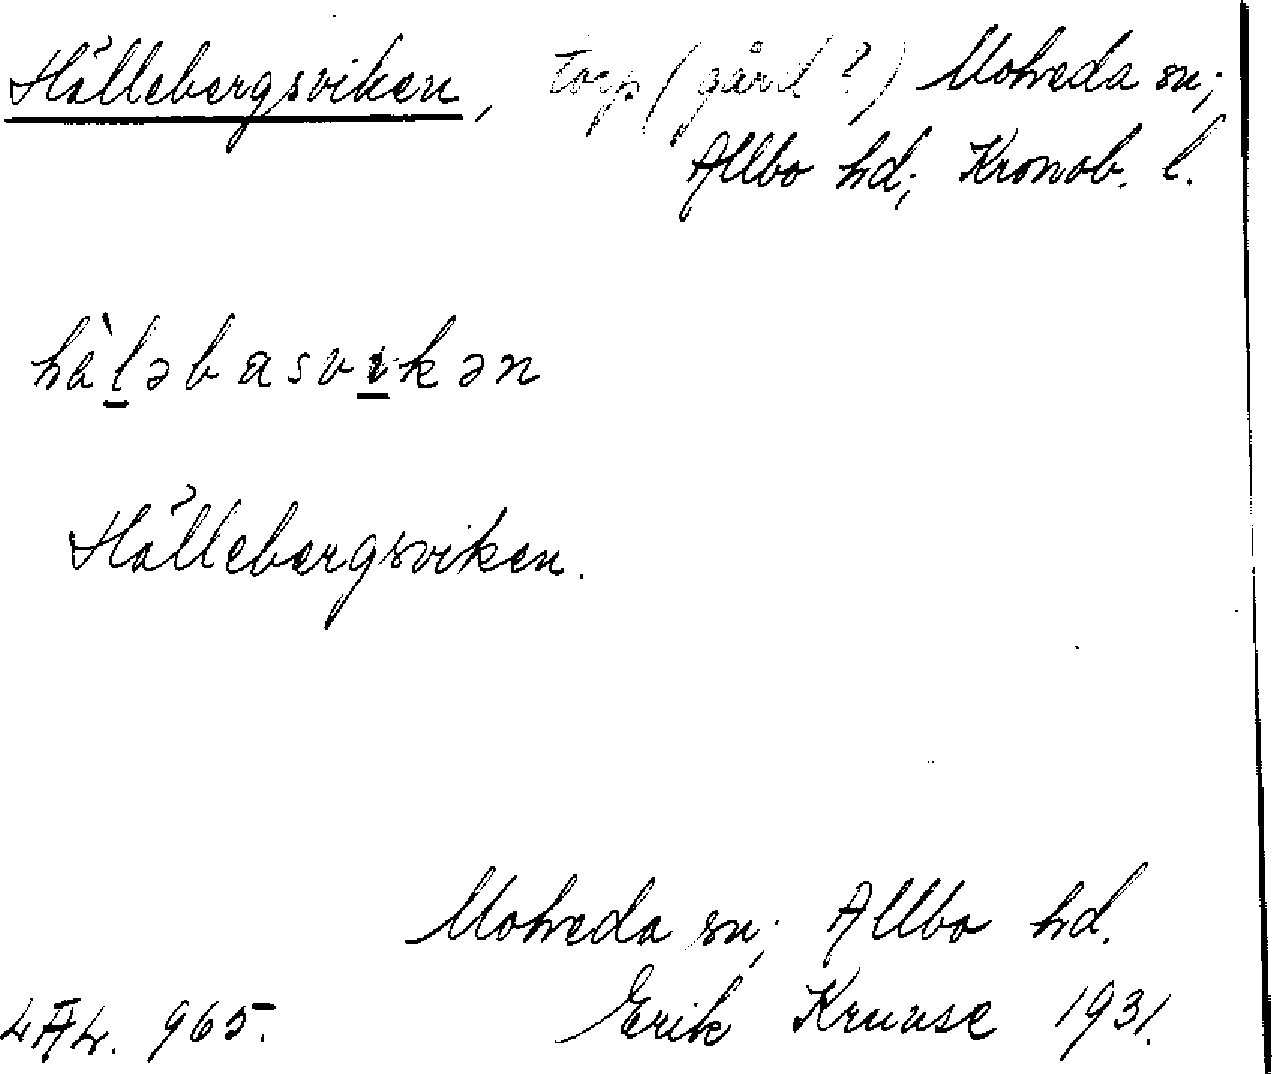 Hållebergsviken, torp (gård?) Moheda sn;
Allbo hd; Kronob. l.
hàləbasvikən
Hållebergsviken.
Moheda sn; Allbo hd.
965. Erik Kruuse 1931.